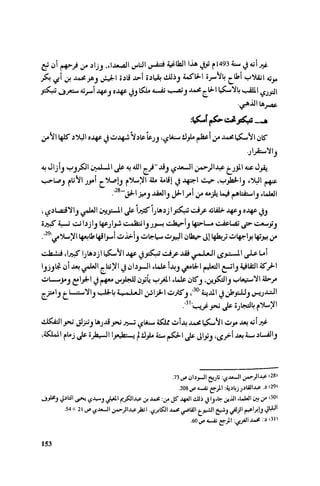 غير أنه في سنة 1493م توفي هذا الطاغية فتنفس الناس الصعداء، وزاد من فرحهم أن تبع
موته انقلاب أطاح بالأسرة الحاكمة وذلك بقيادة أحد قادة الجيش وهو محمد بن أبي بكر
التوري الملقب بالأسكيا الحاج محمد ونصب نفسه ملكا وفي عهده وعهد أسرته ستعرف تنبكتو
عصرها الذهبي.
هـــ تنبكتو تحت حكم أسكيا:
كان الأسكيا محمد من أعظم ملوك سنغاي، ورعاً عادلاً شهدت في عهده البلاد كلها الأمن
والاستقرار.
يقول عنه المؤرخ عبدالرحمن السعدي وقد "فرج الله به على المسلمين الكروب وأزال به
عنهم البلاء والخطوب، حيث اجتهد في إقامة ملة الإسلام وإصلاح أمور الأنام وصاحب
العلماء واستفتاهم فيما يلزمه من أمر الحل والعقد وميز الحق"-28.
وفي عهده وعهد خلفائه عرفت تنبكتو ازدهاراً كبيراً على المستويين العلمي والاقتصادي،
وتوسعت حتى تضاعفت مساحتها وأحيطت بسور وانتظمت شوارعها وازدانت نسبة كبيرة
من بيوتها بواجهات تربطها إلى حيطان البيوت سياجات وأخذت أسواقها طابعها الإسلامي-29.
أما على المستوى العلمي فقد عرفت تنبكتو في عهد الأسكيا ازدهارا كبيرا، فنشطت
الحركة الثقافية واتسع التعليم الجامعي وبدأ علماء السودان في الإنتاج العلمي بعد أن تجاوزوا
مرحلة الاستيعاب والتكوين، وكان علماء المغرب يأتون للجلوس معهم في الجوامع ومؤسسات
التدريس وللتوطن في المدينة-30، وكثرت الخزائن العلمية بالجلب والاستنساخ وامتزج
الإسلام بالتجارة على نحو غريب-31.
غير أنه بعد موت الأسكيا محمد بدأت مملكة سنغاي تسير نحو قدرها وتنزلق نحو التفكك
والفساد سنة بعد أخرى، وتوالى على الحكم ستة ملوك لم يستطيعوا السيطرة على زمام المملكة،
-28) عبدالرحمن السعدي: تاريخ السودان ص 73.
-29) د. عبدالقادر زبادية: المرجع نفسه ص 208.
-30) من بين العلماء الذين جاءوا في ذلك العهد كل من: محمد بن عبدالكريم المغيلي وسيدي يحيى التادلي ومخلوف
البلبالي وإبراهيم الزلفي وشيخ الشيوخ القاضي محمد الكابري. انظر عبدالرحمن السعدي ص 21 + 54.
-31) د. محمد الغربي: المرجع نفسه ص 60.
153